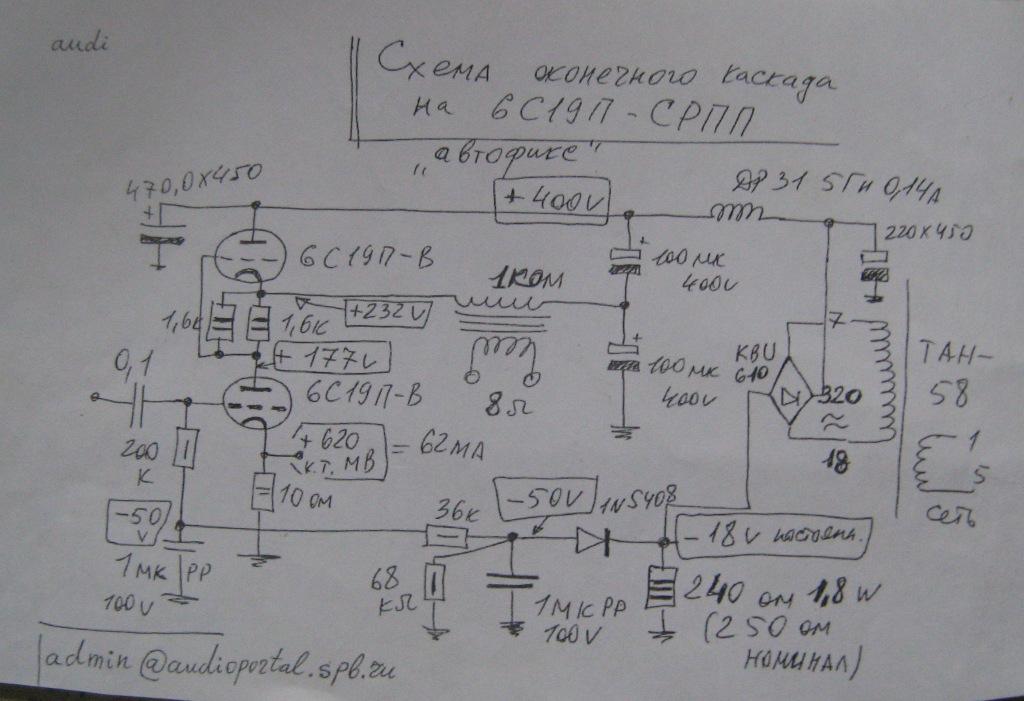 audi
Схема оконечного каскада
на 6С19П - СРПП
„автофикс"
470,0х450
+
+ 400V
ДР 31 5Гн 0,14А
220х450
6С19П-В
1КОМ
+
100 мк
400V
1,6к
1,6к
+232V
+ 177V
+
100 мк
400V
KBU
610
7
320
≈
18
ТАН-
58
1
5
сеть
0,1
6С19П-В
8Ω
200
К
+ 620
к.т. МВ
= 62МА
10 ом
-50
V
36к
-50V
1N5408
-18V настоян.
1МК РР
100V
68
КΩ
1МК РР
100V
240 ом 1,8 W
(250 ом
номинал)
admin@audioportal.spb.ru